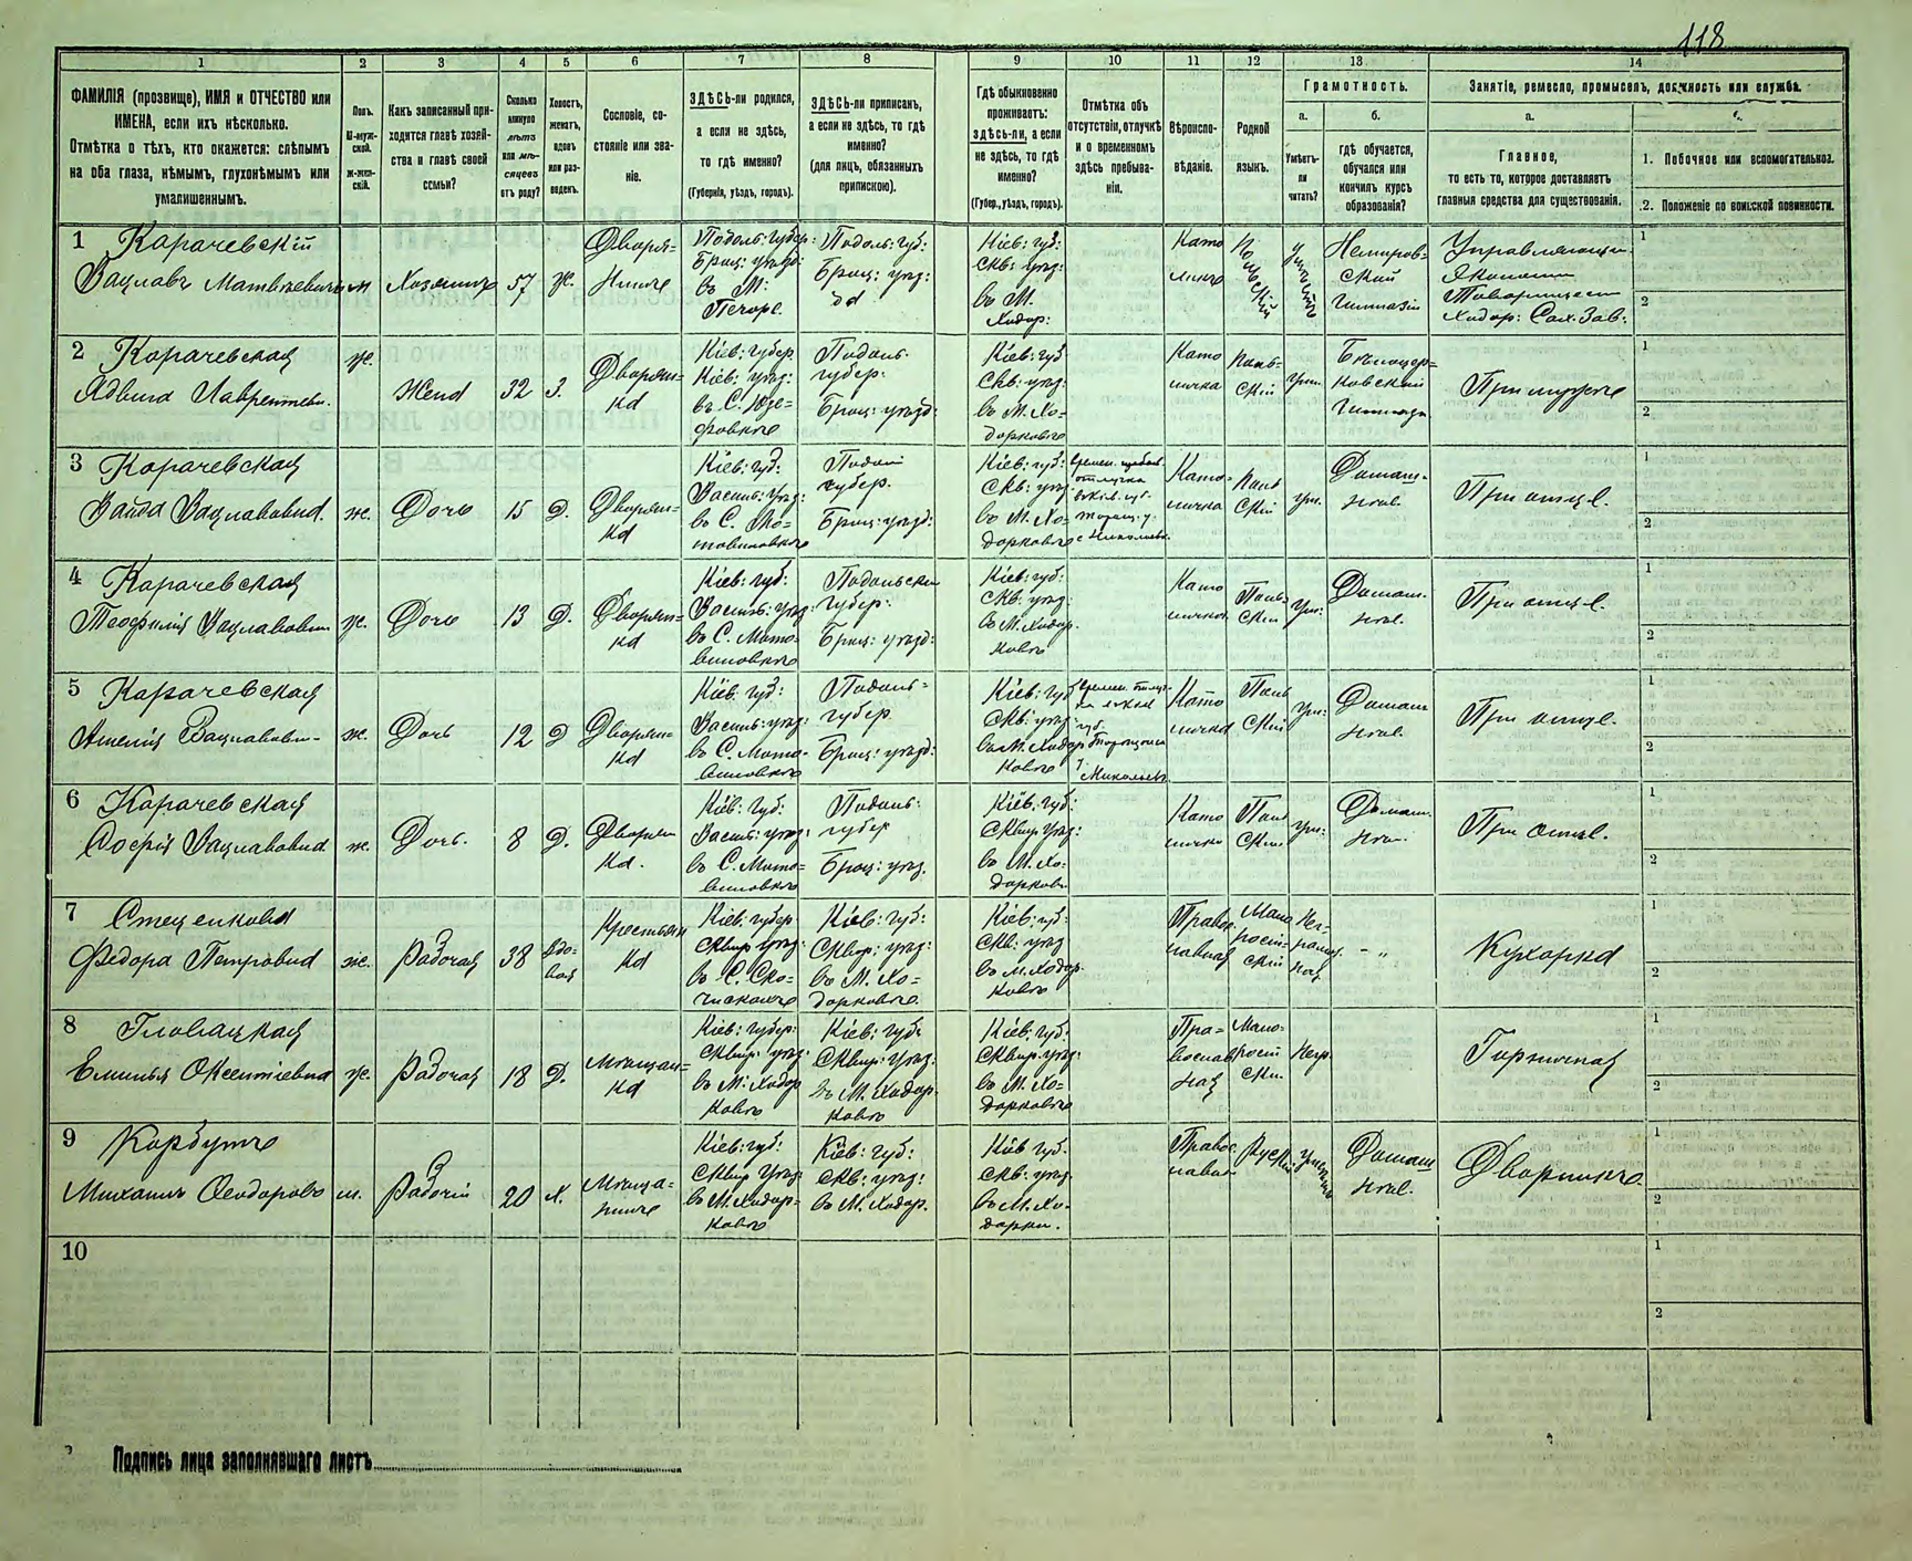 118
1 2 3 4 5 6 7 8 9 10 11 12 13 14
ФАМИЛІЯ (прозвище), ИМЯ и ОТЧЕСТВО или
ИМЕНА, если ихъ нѣсколько.
Отмѣтка о тѣхъ, кто окажется: слѣпымъ
на оба глаза, нѣмымъ, глухонѣмымъ или
умалишеннымъ.
Полъ.
М-муж-
ской.
ж-жен-
скій.
Какъ записанный при-
ходится главѣ хозяй-
ства и главѣ своей
семьи?
Сколько
минуло
лѣтъ
или мѣ-
сяцевъ
отъ роду?
Холостъ,
женатъ,
вдовъ
или раз-
веденъ.
Сословіе, со-
стояніе или зва-
ніе.
ЗДѢСЬ-ли родился,
а если не здѣсь,
то гдѣ именно?
(Губернія, уѣздъ, городъ).
ЗДѢСЬ-ли приписанъ,
а если не здѣсь, то гдѣ
именно?
(для лицъ, обязанныхъ
припискою).
Гдѣ обыкновенно
проживаетъ:
здѣсь-ли, а если
не здѣсь, то гдѣ
именно?
(Губер., уѣздъ, городъ).
Отмѣтка объ
отсутствіи, отлучкѣ
и о временномъ
здѣсь пребыва-
ніи.
Вѣроиспо-
вѣданіе.
Родной
языкъ.
Грамотность.
а.
Умѣетъ-
ли
читать?
б.
гдѣ обучается,
обучался или
кончилъ курсъ
образованія?
Занятіе, ремесло, промыселъ, должность или служба.
а.
Главное,
то есть то, которое доставляетъ
главныя средства для существованія.
1. Побочное или вспомогательное.
2. Положеніе по воинской повинности.
1 Карачевскій
Вацлавъ Матвѣевичъ
м
Хозяинъ
57
ж.
Дворя-
нинъ
Подоль: губер:
Брац: уѣзд:
въ М:
Печоре.
Подоль: губ:
Брац: уѣзд:
Кіев: губ:
Скв: уѣзд:
въ М.
Ходор:
Като
ликъ
Польскій
Немиров-
ской
Гимназіи
Ходор: Сах. Зав:
1
2
2 Карачевская
Ядвига Лаврентьевн.
ж.
Жена
32
З.
Дворян-
ка
Кіев: губер.
Кіев: уѣзд:
въ С. Юзе-
фовкѣ
Подоль.
губер:
Брац: уѣзд:
Кіев: губ
Скв: уѣзд:
въ М. Хо-
дорковѣ
Като
личка
Поль-
скій
Ум.
При мужѣ
1
2
3 Карачевская
Ванда Вацлавовна.
ж.
Дочь
15
Д.
Дворян-
ка
Кіев: губ:
Васил: уѣзд:
въ С. Мо-
товиловкѣ
губер.
Брац: уѣзд:
Кіев: губ:
Скв: уѣзд:
въ М. Хо-
дорковѣ
Като-
личка
Поль
скій
ум.
Домаш-
нее.
При отцѣ.
1
2
4 Карачевская
Теофилія Вацлавовн.
ж.
Дочь
13
Д.
Дворян-
ка
Кіев: губ:
Васил: уѣзд:
въ С. Мото-
виловкѣ
Подольской
губер:
Брац: уѣзд:
Кіев: губ:
Скв: уѣзд:
въ М. Ходор.
ковѣ
Като
личка
Поль
скій
Ум:
Домаш.
нее.
При отцѣ.
1
2
5 Карачевская
Анеля Вацлавовн-
ж.
Дочь
12
Д
Дворян-
ка
Кіев. губ:
Васил: уѣзд:
въ С. Мото-
виловкѣ
Подоль-
губер
Брац: уѣзд:
Кіев: губ
Скв: уѣзд:
въ М. Ходор
ковѣ
Като
личка
Поль
скій
Ум:
Домаш
нее.
При отцѣ.
1
2
6 Карачевская
Софія Вацлавовна
ж.
Дочь.
8
Д.
Дворян
ка.
Кіев: губ:
Васил: уѣзд:
въ С. Мото-
виловкѣ
Подоль:
губер
Брац: уѣзд.
Кіев: губ:
Сквир уѣзд:
въ М. Хо:
дорков.
Като
личка
Поль
скій
ум:
Домаш.
нее.
При отцѣ.
1
2
7 Стеценкова
Федора Петровна
ж.
Рабочая
38
вдо-
вая
Крестьян
ка
Кіев: губер
Сквир уѣзд:
въ С. Ско-
Кіев: губ:
Сквир: уѣзд:
въ М. Хо-
дорковѣ.
Кіев: губ:
Скв: уѣзд
въ м. Ходор.
ковѣ
Право
славная
Мало
россій-
скій
Нег-
рамот
ная
- „
Кухарка
1
2
8 Гловацкая
Емилья Оксентіевна
ж.
Рабочая
18
Д.
Мѣщан-
ка
Кіев: губер:
Сквир: уѣзд:
въ М: Ходор
ковѣ
Кіев: губ:
Сквир: уѣзд:
въ М. Ходор.
ковѣ
Кіев: губ:
Сквир. уѣзд:
въ М. Хо-
дорковѣ
Пра-
вослав
ная
Мало-
россій
ски.
Негр.
Горничная
1
2
9 Корбутъ
Михаилъ Феодоровъ
м.
Рабочій
20
х.
Мѣща-
нинъ
Кіев: губ:
Сквир уѣзд
въ М. Ходор-
ковѣ
Кіев: губ:
Скв: уѣзд:
въ М. Ходор.
Кіев губ.
Скв: уѣзд.
въ М. Хо-
дорки.
Право
славн.
Рускій
Домаш
нее.
Дворникъ
1
2
10
1
2
Подпись лица заполнявшаго листъ